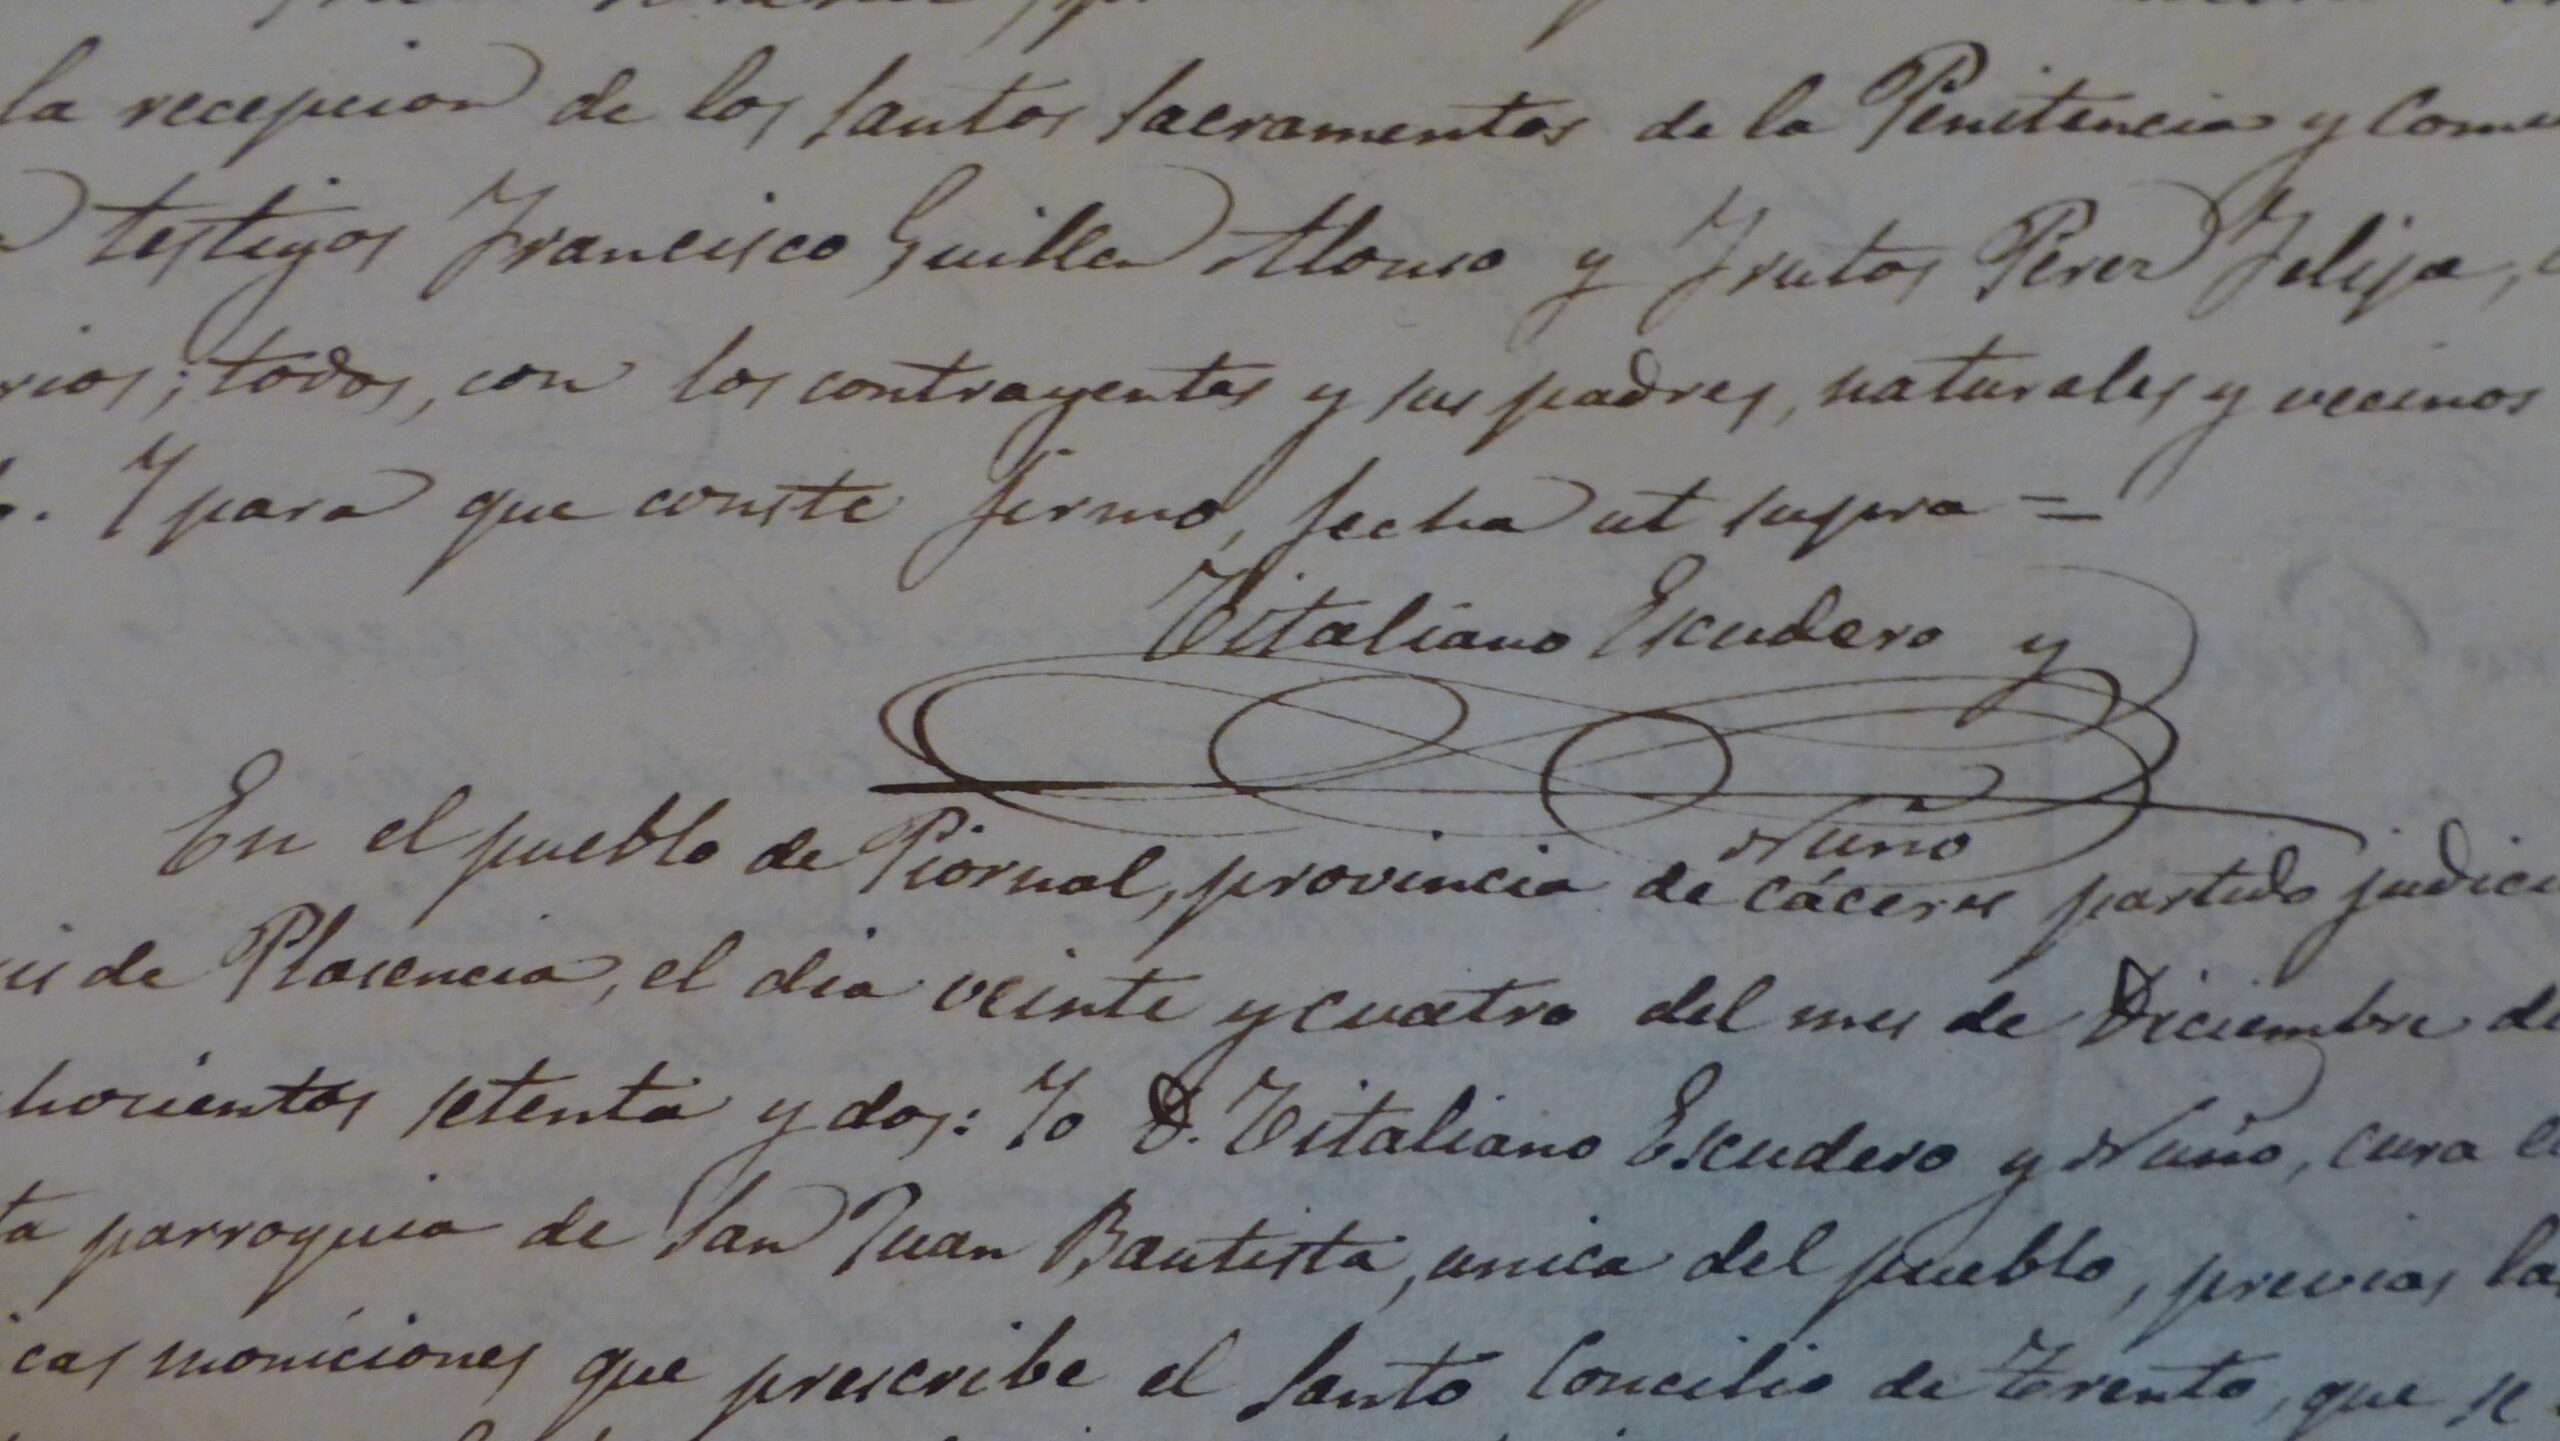 la recepcion de los santos sacramentos de la Penitencia y Comu
testigos Francisco Guillen Alonso y Frutos Perez Felipa,
rios; todos, con los contrayentes y sus padres, naturales y vecinos
o. Y para que conste firmo, fecha ut supra =
Vitaliano Escudero y
Nuño
En el pueblo de Piornal, provincia de Cáceres partido judici
is de Plasencia, el dia veinte y cuatro del mes de Diciembre de
hocientos setenta y dos: Yo D. Vitaliano Escudero y Nuño, cura e
ta parroquia de San Juan Bautista, unica del pueblo, previas las
icas moniciones que prescribe el Santo Concilio de Trento, que se